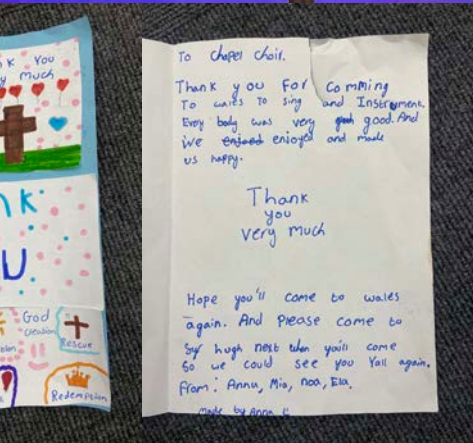 k You
y much
nk
U
God
Creation
Rescue
Redemption
To Chapel Choir.
Thank you For Comming
To wales To sing and Instrument.
Every body was very good. And
We enjoyed and made
us happy.
Thank
you
very much
Hope you'll come to wales
again. And Please come to
hugh nest when you'll come
So we could see you Yall again.
From: Anna, Mia, noa, Ela.
made by Anna